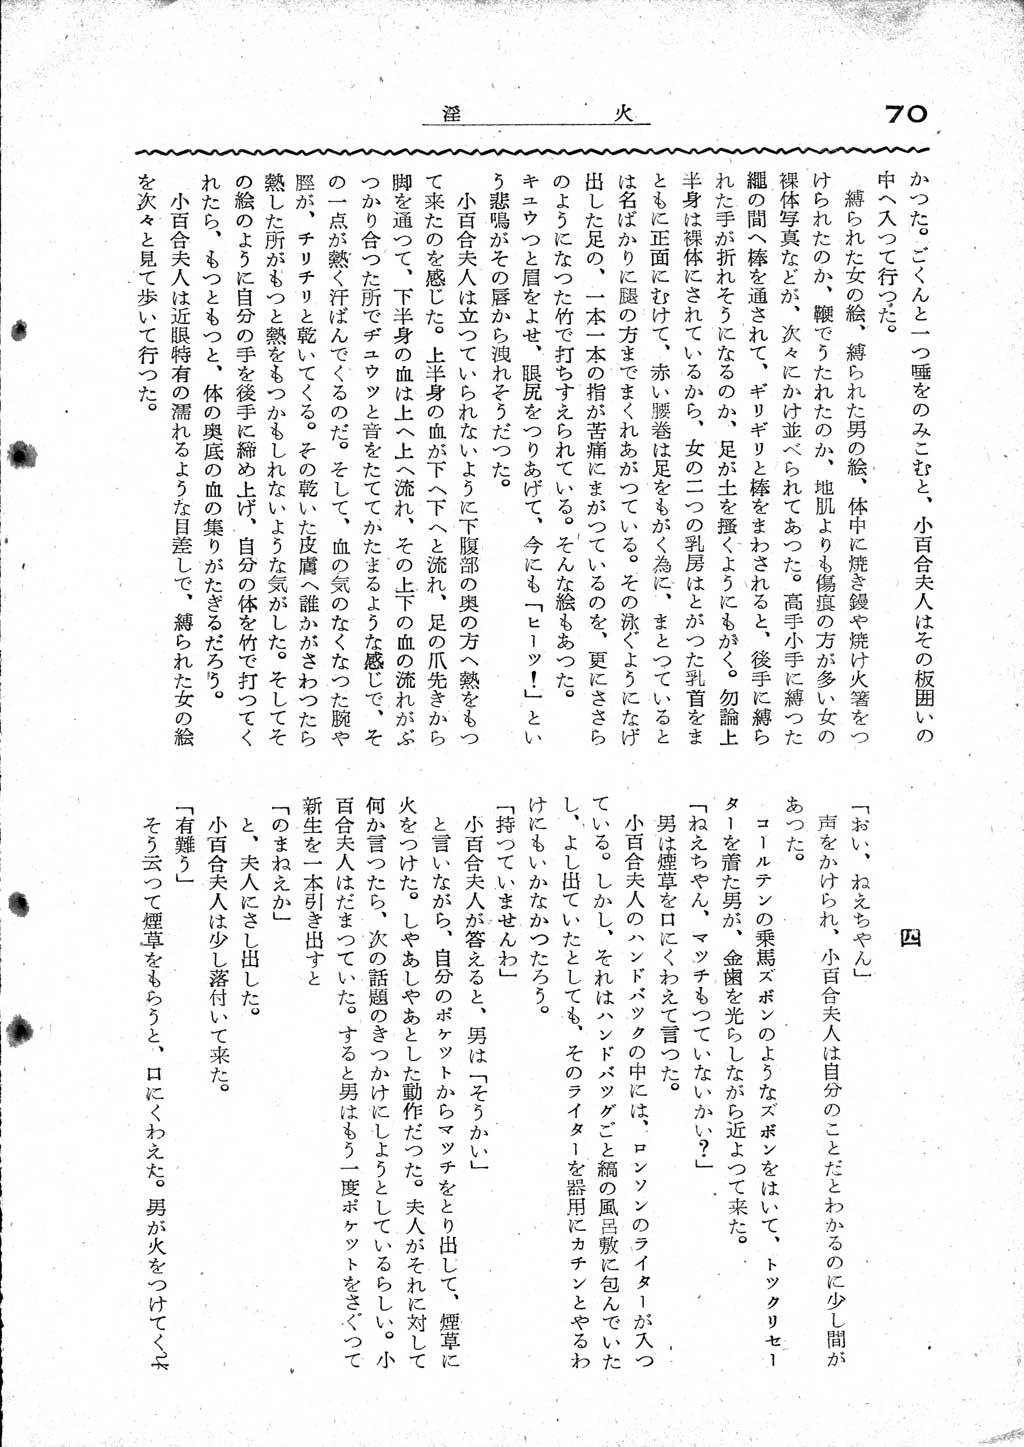 70
淫火
かつた。ごくんと一つ唾をのみこむと、小百合夫人はその板囲いの
中へ入つて行つた。
縛られた女の絵、縛られた男の絵、体中に焼き鏝や焼け火箸をつ
けられたのか、鞭でうたれたのか、地肌よりも傷痕の方が多い女の
裸体写真などが、次々にかけ並べられてあつた。高手小手に縛つた
縄の間へ棒を通されて、ギリギリと棒をまわされると、後手に縛ら
れた手が折れそうになるのか、足が土を搔くようにもがく。勿論上
半身は裸体にされているから、女の二つの乳房はとがつた乳首をま
ともに正面にむけて、赤い腰巻は足をもがく為に、まとつていると
は名ばかりに腿の方までまくれあがつている。その泳ぐようになげ
出した足の、一本一本の指が苦痛にまがつているのを、更にささら
のようになつた竹で打ちすえられている。そんな絵もあつた。
キュウつと眉をよせ、眼尻をつりあげて、今にも「ヒーッ！」とい
う悲鳴がその唇から洩れそうだつた。
小百合夫人は立つていられないように下腹部の奥の方へ熱をもつ
て来たのを感じた。上半身の血が下へ下へと流れ、足の爪先きから
脚を通つて、下半身の血は上へ上へ流れ、その上下の血の流れがぶ
つかり合つた所でヂュウッと音をたててかたまるような感じで、そ
の一点が熱く汗ばんでくるのだ。そして、血の気のなくなつた腕や
脛が、チリチリと乾いてくる。その乾いた皮膚へ誰かがさわつたら
熱した所がもつと熱をもつかもしれないような気がした。そしてそ
の絵のように自分の手を後手に締め上げ、自分の体を竹で打つてく
れたら、もつともつと、体の奥底の血の集りがたぎるだろう。
小百合夫人は近眼特有の濡れるような目差しで、縛られた女の絵
を次々と見て歩いて行つた。
四
「おい、ねえちやん」
声をかけられ、小百合夫人は自分のことだとわかるのに少し間が
あつた。
コールテンの乗馬ズボンのようなズボンをはいて、トックリセー
ターを着た男が、金歯を光らしながら近よつて来た。
「ねえちやん、マッチもつていないかい？」
男は煙草を口にくわえて言つた。
小百合夫人のハンドバックの中には、ロンソンのライターが入つ
ている。しかし、それはハンドバッグごと縞の風呂敷に包んでいた
し、よし出ていたとしても、そのライターを器用にカチンとやるわ
けにもいかなかつたろう。
「持つていませんわ」
小百合夫人が答えると、男は「そうかい」
と言いながら、自分のポケットからマッチをとり出して、煙草に
火をつけた。しやあしやあとした動作だつた。夫人がそれに対して
何か言つたら、次の話題のきつかけにしようとしているらしい。小
百合夫人はだまつていた。すると男はもう一度ポケットをさぐつて
新生を一本引き出すと
「のまねえか」
と、夫人にさし出した。
小百合夫人は少し落付いて来た。
「有難う」
そう云つて煙草をもらうと、口にくわえた。男が火をつけてくれ